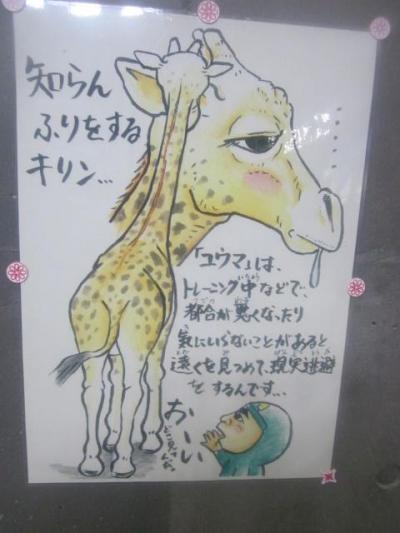 知らん
ふりをする
キリン…
「ユウマ」は、
トレーニング中などで、
都合が悪くなったり
気にいらないことがあると
遠くを見つめて、現実逃避
をするんです…
おーい